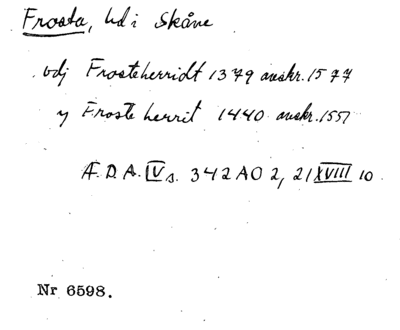 Frosta, hd i Skåne
vdj Frosteherridt 1379 avskr. 1577
y Froste herrit 1440 avskr. 1551
Æ. D. A. IV s. 342 AO 2, 21 XVIII 10
Nr 6598.